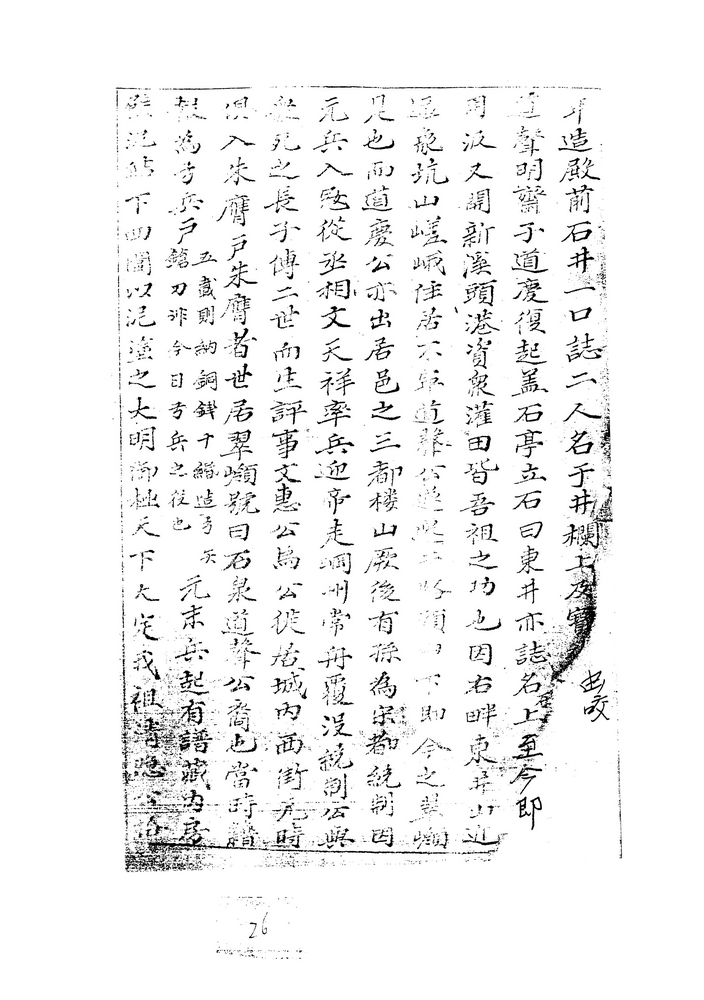 年造殿前石井一口誌二人名于井欄上及寶
道聲明齋子道慶復起盖石亭立石曰東井亦誌名上至今即
用汲又開新溪頭港資衆灌田皆吾祖之功也因右畔東井山近
泉坑山嵯峨住居不 道聲公遊 下即今之翠嶼
是也而道慶公亦出居邑之三都樓山厥後有孫為宋都統制因
元兵入寇從丞相文天祥率兵迎帝走碙州常舟覆沒統制公與
死之長子傳二世而生評事文惠公焉公徙居城內西街元時
俱入朱膺戶朱膺者世居翠嶼號曰石泉道聲公裔也當時籍
為弓兵戶
五歲則納銅錢十緡造弓矢
鎗刀非今日弓兵之役也
元末兵起有譜藏內房
泥 下四圍以泥塗之大明御極天下大定我祖清隱公
26